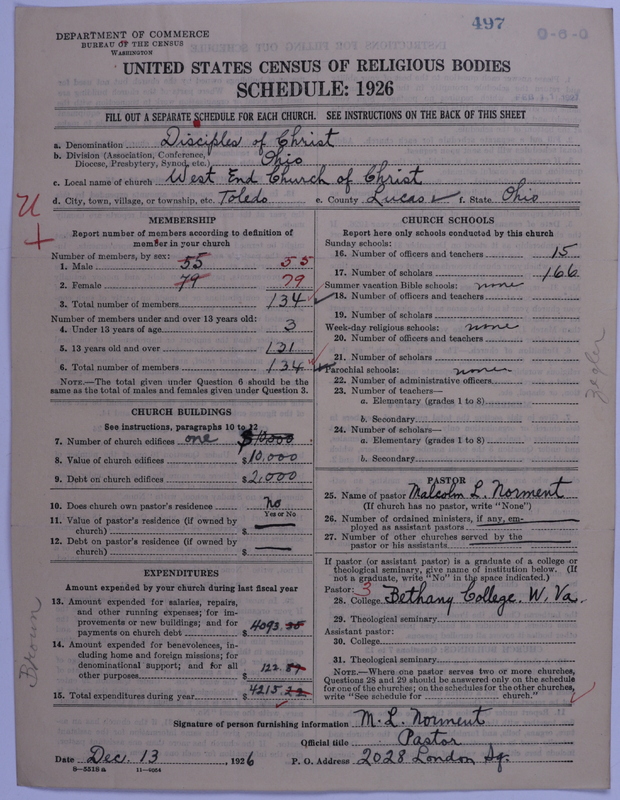 497
DEPARTMENT OF COMMERCE
BUREAU OF THE CENSUS
WASHINGTON
UNITED STATES CENSUS OF RELIGIOUS BODIES
SCHEDULE: 1926
FILL OUT A SEPARATE SCHEDULE FOR EACH CHURCH. SEE INSTRUCTIONS ON THE BACK OF THIS SHEET
a. Denomination Disciples of Christ
b. Division (Association, Conference, Diocese, Presbytery, Synod, etc.) Ohio
c. Local name of church West End Church of Christ
d. City, town, village, or township, etc. Toledo e. County Lucas f. State Ohio
MEMBERSHIP
Report number of members according to definition of
member in your church
Number of members, by sex:
1. Male 55 55
2. Female 79 79
3. Total number of members 134
Number of members under and over 13 years old:
4. Under 13 years of age 3
5. 13 years old and over 131
6. Total number of members 134
NOTE.—The total given under Question 6 should be the
same as the total of males and females given under Question 3.
CHURCH BUILDINGS
See instructions, paragraphs 10 to 12
7. Number of church edifices one $10,000
8. Value of church edifices $10,000
9. Debt on church edifices $2,000
10. Does church own pastor's residence no
Yes or No
11. Value of pastor's residence (if owned by
church) $
12. Debt on pastor's residence (if owned by
church) $
EXPENDITURES
Amount expended by your church during last fiscal year
13. Amount expended for salaries, repairs,
and other running expenses; for im-
provements or new buildings; and for
payments on church debt $4093.
14. Amount expended for benevolences, in-
cluding home and foreign missions; for
denominational support; and for all
other purposes 122.
15. Total expenditures during year $4215.22
CHURCH SCHOOLS
Report here only schools conducted by this church
Sunday schools:
16. Number of officers and teachers 15
17. Number of scholars 166
Summer vacation Bible schools: none
18. Number of officers and teachers
19. Number of scholars
Week-day religious schools: none
20. Number of officers and teachers
21. Number of scholars
Parochial schools: none
22. Number of administrative officers
23. Number of teachers—
a. Elementary (grades 1 to 8)
b. Secondary
24. Number of scholars—
a. Elementary (grades 1 to 8)
b. Secondary
PASTOR
25. Name of pastor Malcolm L. Norment
(If church has no pastor, write "None")
26. Number of ordained ministers, if any, em-
ployed as assistant pastors
27. Number of other churches served by the
pastor or his assistants
If pastor (or assistant pastor) is a graduate of a college or
theological seminary, give name of institution below. (If
not a graduate, write "No" in the space indicated.)
Pastor: 3
28. College Bethany College. W. Va.
29. Theological seminary
Assistant pastor:
30. College
31. Theological seminary
NOTE.—Where one pastor serves two or more churches,
Questions 28 and 29 should be answered only on the schedule
for one of the churches; on the schedules for the other churches,
write "See schedule for church."
Signature of person furnishing information M. L. Norment
Official title Pastor
Date Dec. 13, 1926 P. O. Address 2028 London Sq.
8—5518 a 11—4664
Brown
Zegler